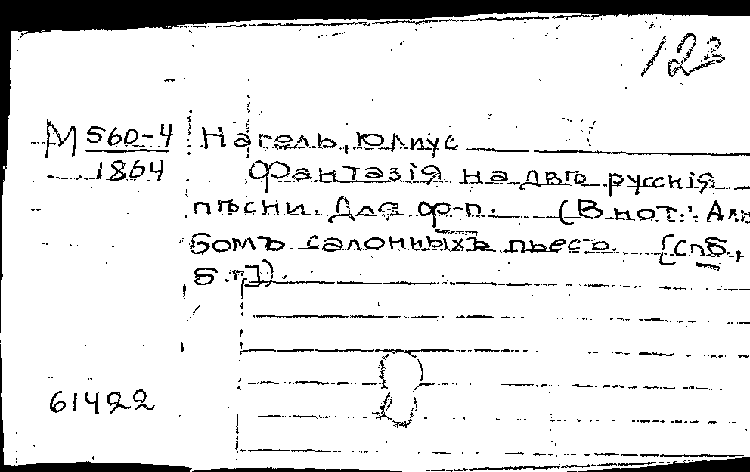 123
М 560-4 Нагель, Юлиус
1864 Фантазія на двѣ русскія
пѣсни. Для ф-п. (В нот.: Аль
бомъ салонныхъ пьесъ [СПБ.,
б.г.]).
61422